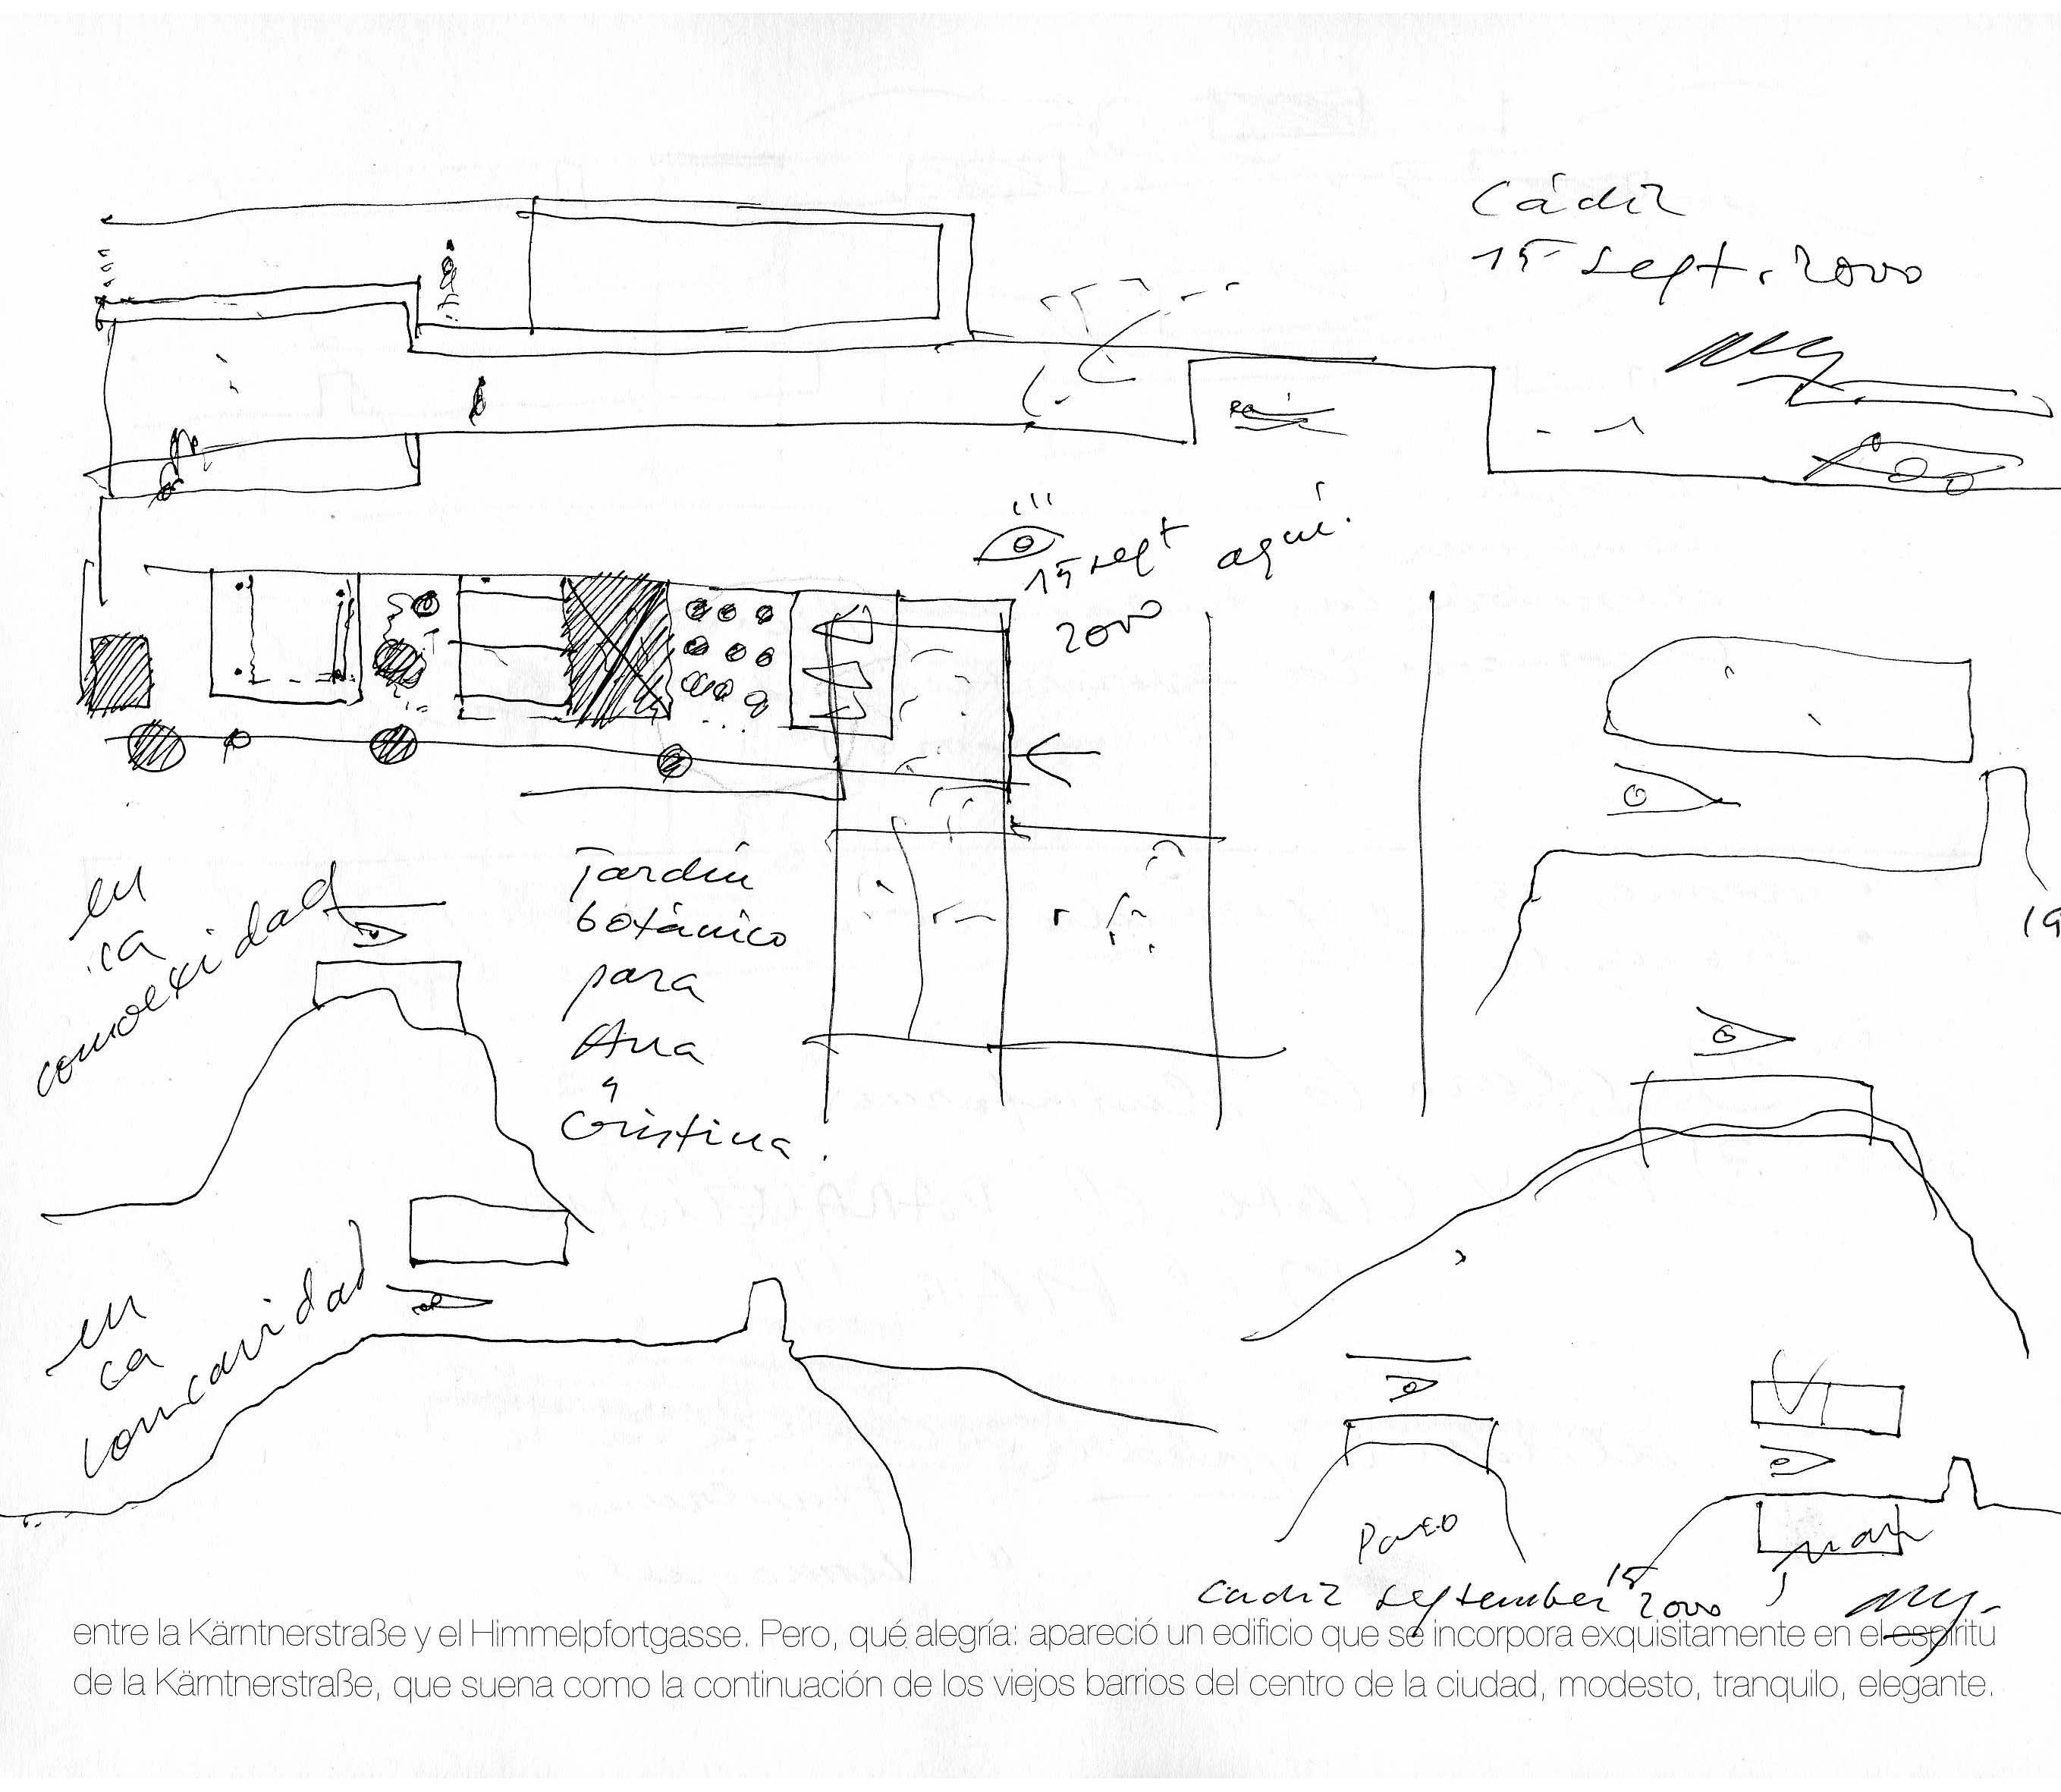 Cádiz
15 sept. 2000
15 sept aquí.
2000
Jardín
botánico
para
Ana
y
Cristina.
en
la
convexidad
en
la
concavidad
Paseo
Cádiz september 15 2000
entre la Kärntnerstraße y el Himmelpfortgasse. Pero, qué alegría: apareció un edificio que se incorpora exquisitamente en el espíritu
de la Kärntnerstraße, que suena como la continuación de los viejos barrios del centro de la ciudad, modesto, tranquilo, elegante.